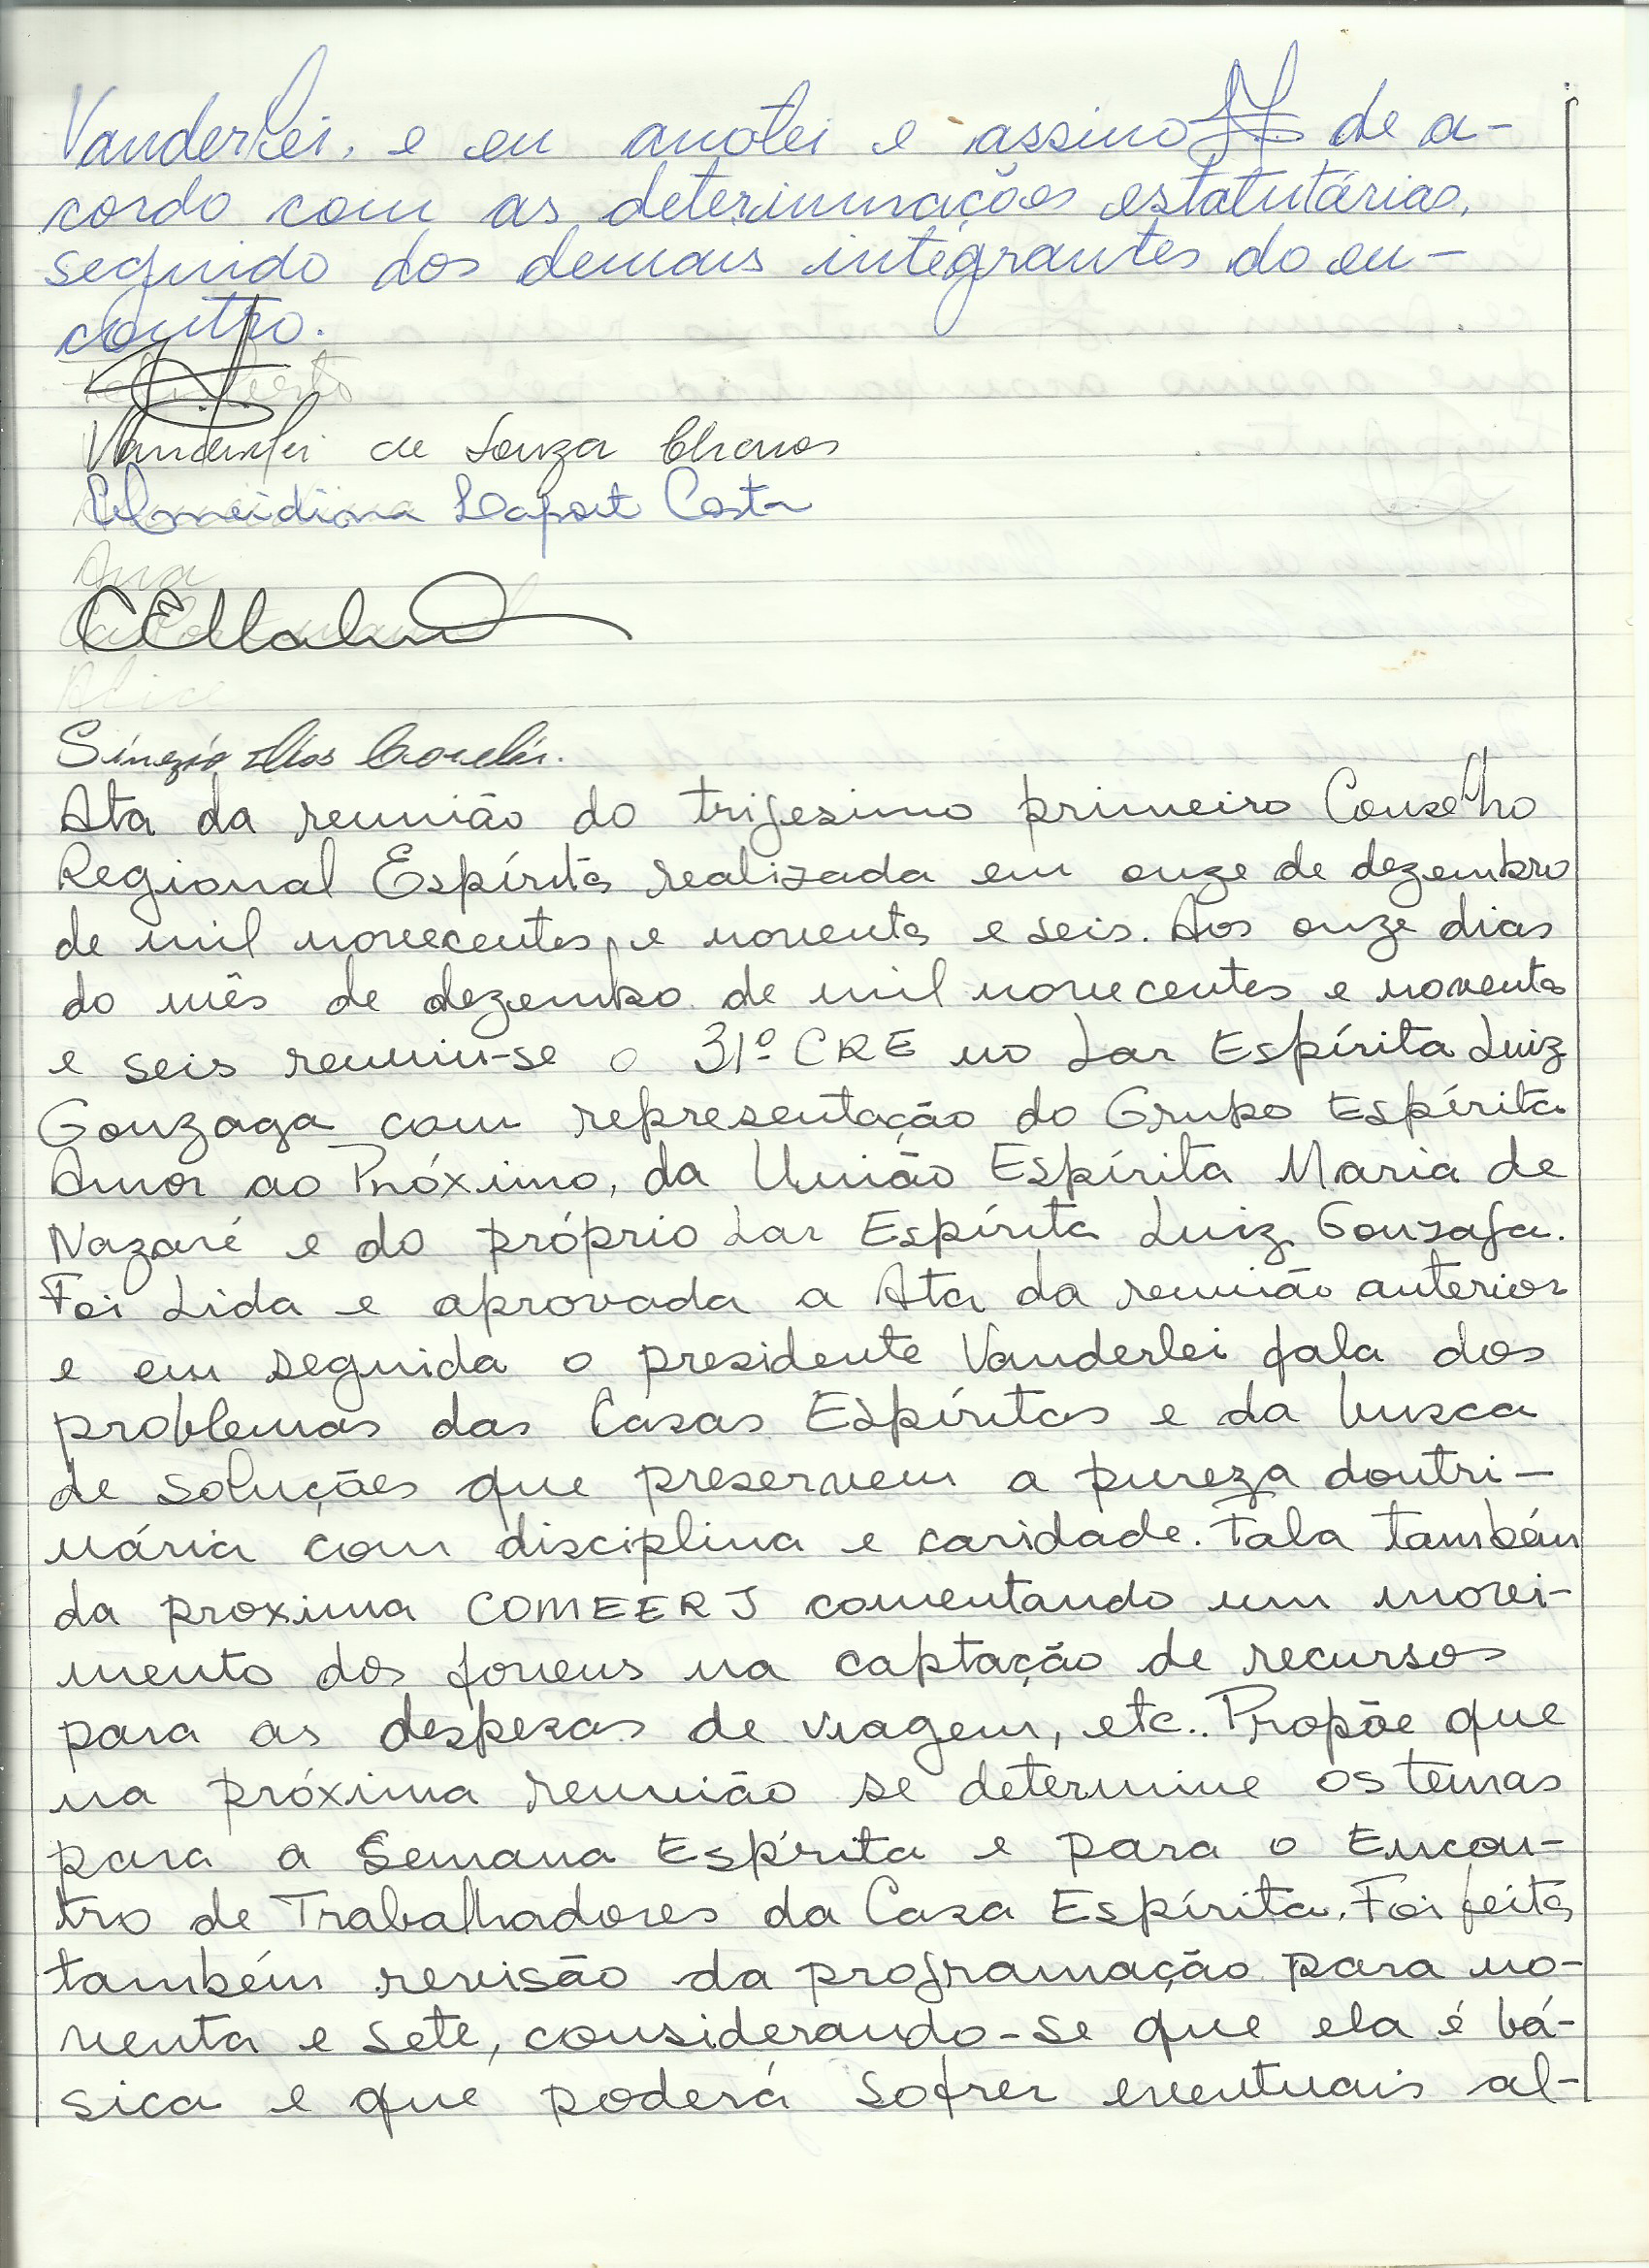 Vanderlei, e eu anotei e assino de a-
cordo com as determinações estatutárias,
seguido dos demais integrantes do en-
contro.
Vanderlei de Souza Chaves
Almeidiana Laport Costa
Ana
Alice
Sinezio Dias
Ata da reunião do trijesimo primeiro Conselho
Regional Espírita realizada em onze de dezembro
de mil novecentos e noventa e seis. Aos onze dias
do mês de dezembro de mil novecentos e noventa
e seis reuniu-se o 31º CRE no Lar Espírita Luiz
Gonzaga com representação do Grupo Espírita
Amor ao Próximo, da União Espírita Maria de
Nazaré e do próprio Lar Espírita Luiz Gonzaga.
Foi Lida e aprovada a Ata da reunião anterior
e em seguida o presidente Vanderlei fala dos
problemas das Casas Espíritas e da busca
de soluções que preservem a pureza doutri-
nária com disciplina e caridade. Fala também
da proxima COMEERJ comentando um movi-
mento dos jovens na captação de recursos
para as despezas de viagem, etc.. Propõe que
na próxima reunião se determine os temas
para a Semana Espírita e para o Encon-
tro de Trabalhadores da Casa Espírita. Foi feita
também revisão da programação para no-
venta e sete, considerando-se que ela é bá-
sica e que poderá sofrer eventuais al-